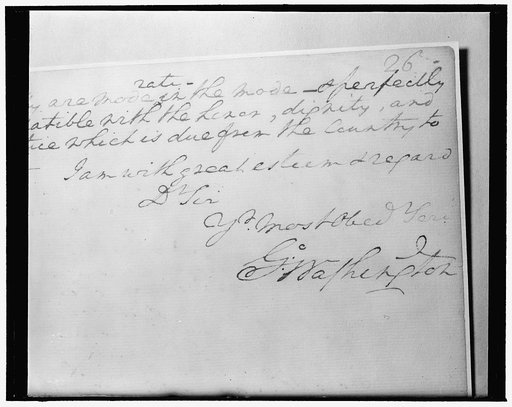 26
rati-
are made in the mode - & perfectly
atible with the honor, dignity, and
tice which is due from the Country to
I am with great esteem & regard
Dr Sir
Yr. most Obed Serv.
Go: Washington